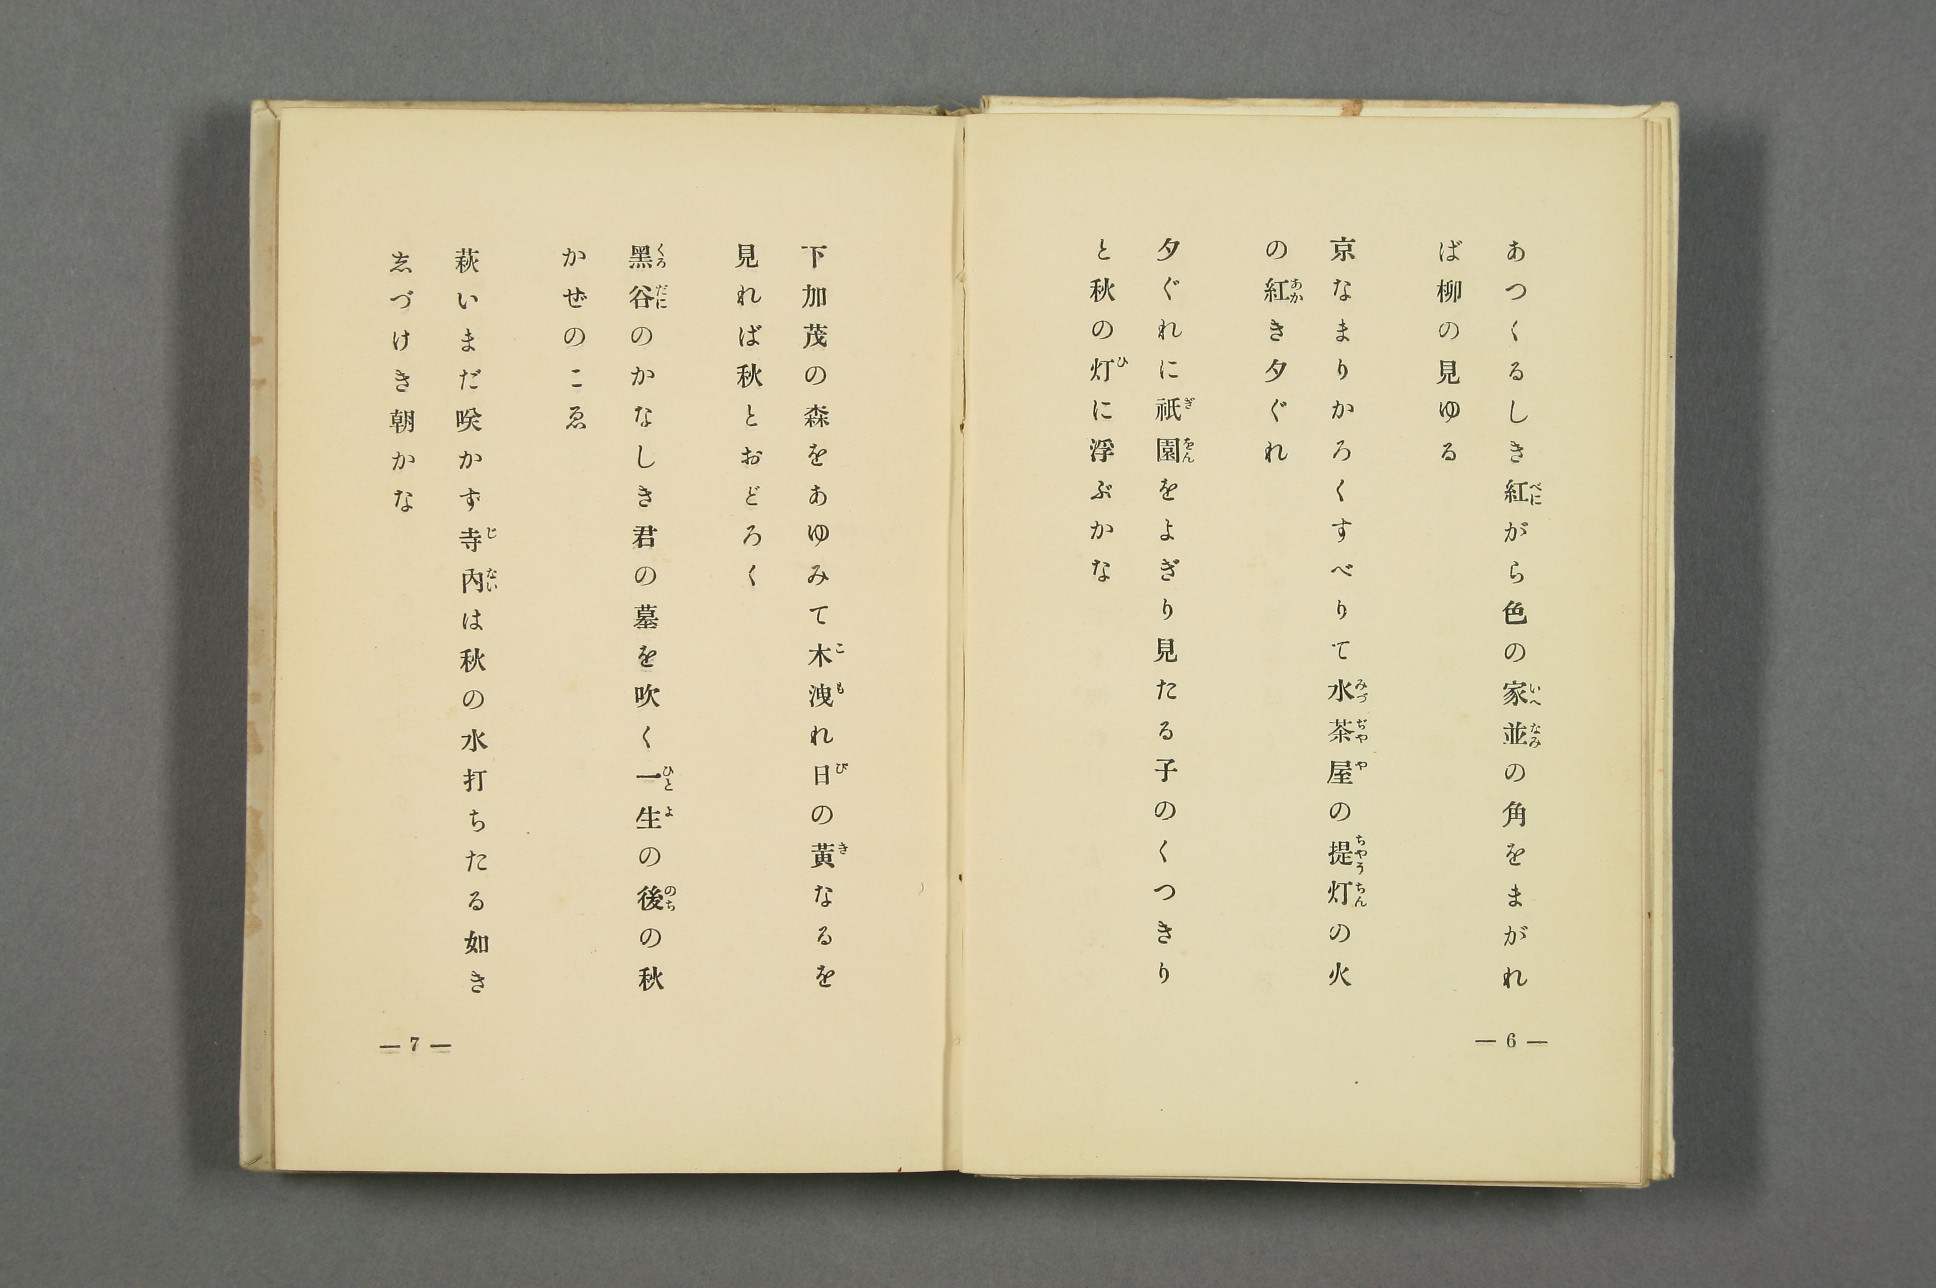 あつくるしき紅がら色の家並の角をまがれ
ば柳の見ゆる
京なまりかろくすべりて水茶屋の提灯の火
の紅き夕ぐれ
夕ぐれに祇園をよぎり見たる子のくつきり
と秋の灯に浮ぶかな
— 6 —
下加茂の森をあゆみて木洩れ日の黃なるを
見れば秋とおどろく
黑谷のかなしき君の墓を吹く一生の後の秋
かぜのこゑ
萩いまだ咲かず寺內は秋の水打ちたる如き
しづけき朝かな
— 7 —